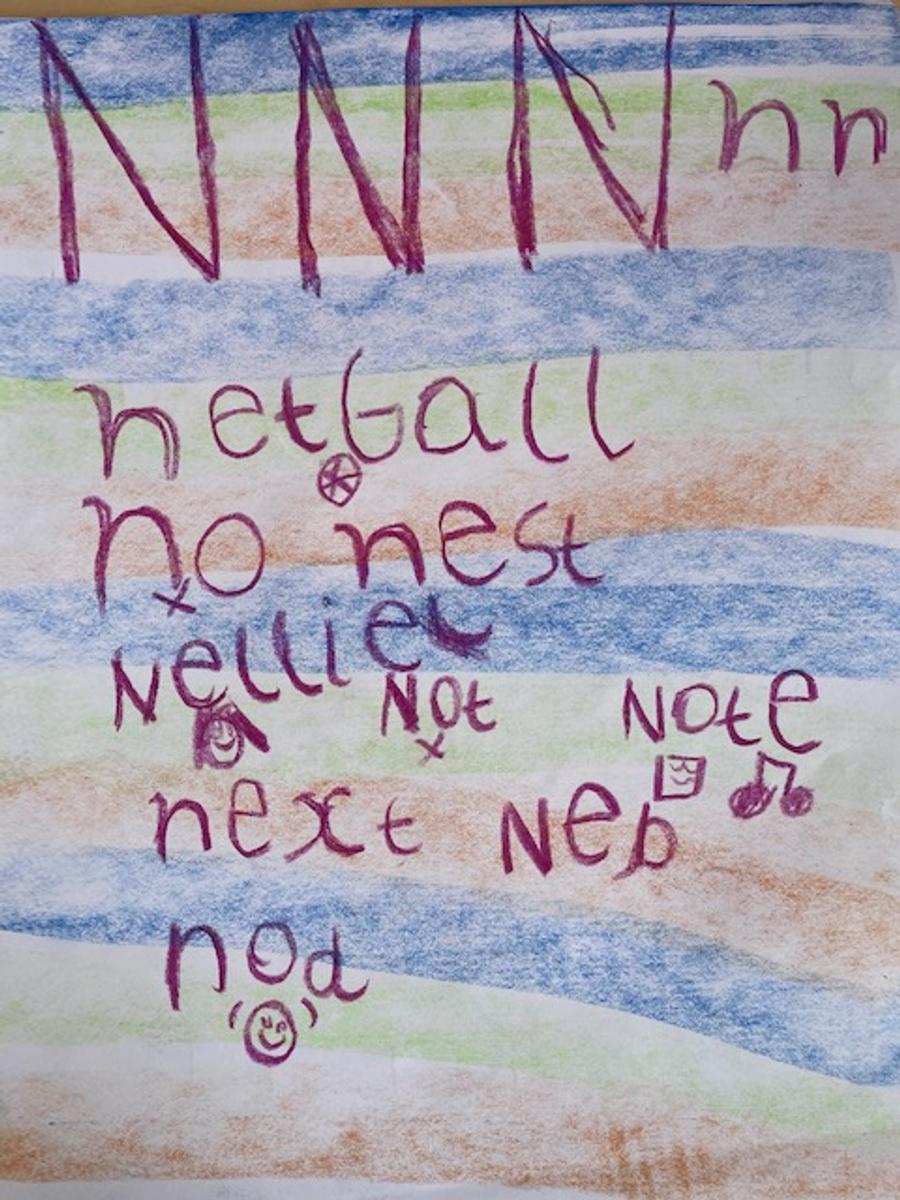 N N N n n
netball
no nest
Nellie
Not Note
next Neb
nod